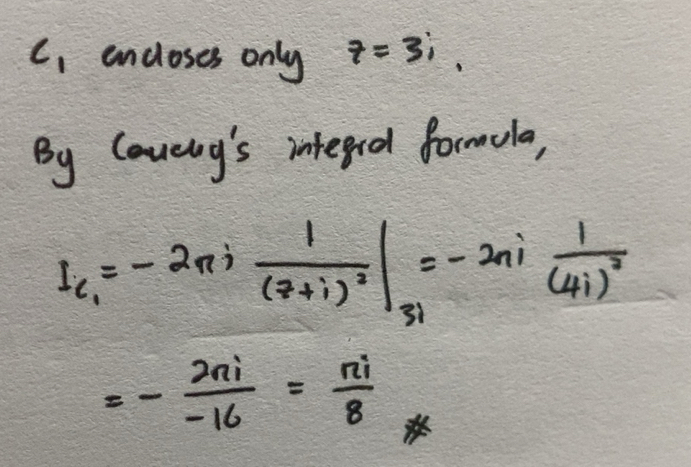 C₁ encloses only z = 3i.
By Cauchy's integral formula,
I_C₁ = - 2πi 1/(z+i)² |_3i = - 2πi 1/(4i)²
= - 2πi/-16 = πi/8 #